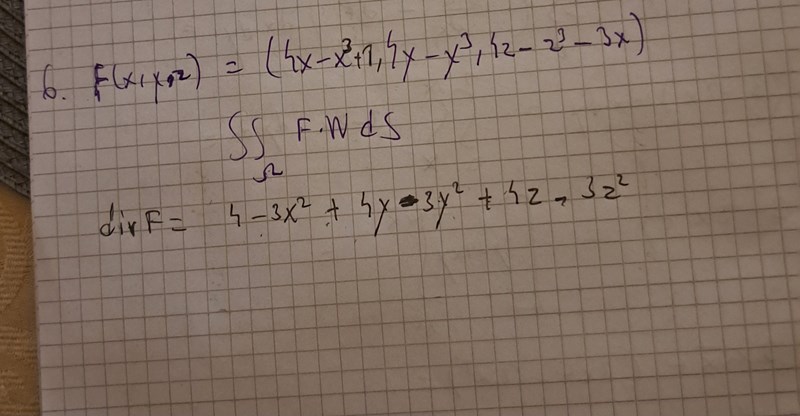 6. F(x,y,z) = (4x-x³+1,4y-y³,4z-z³-3x)
∬ F·N dS
Ω
div F = 4-3x² + 4y-3y² + 4z-3z²